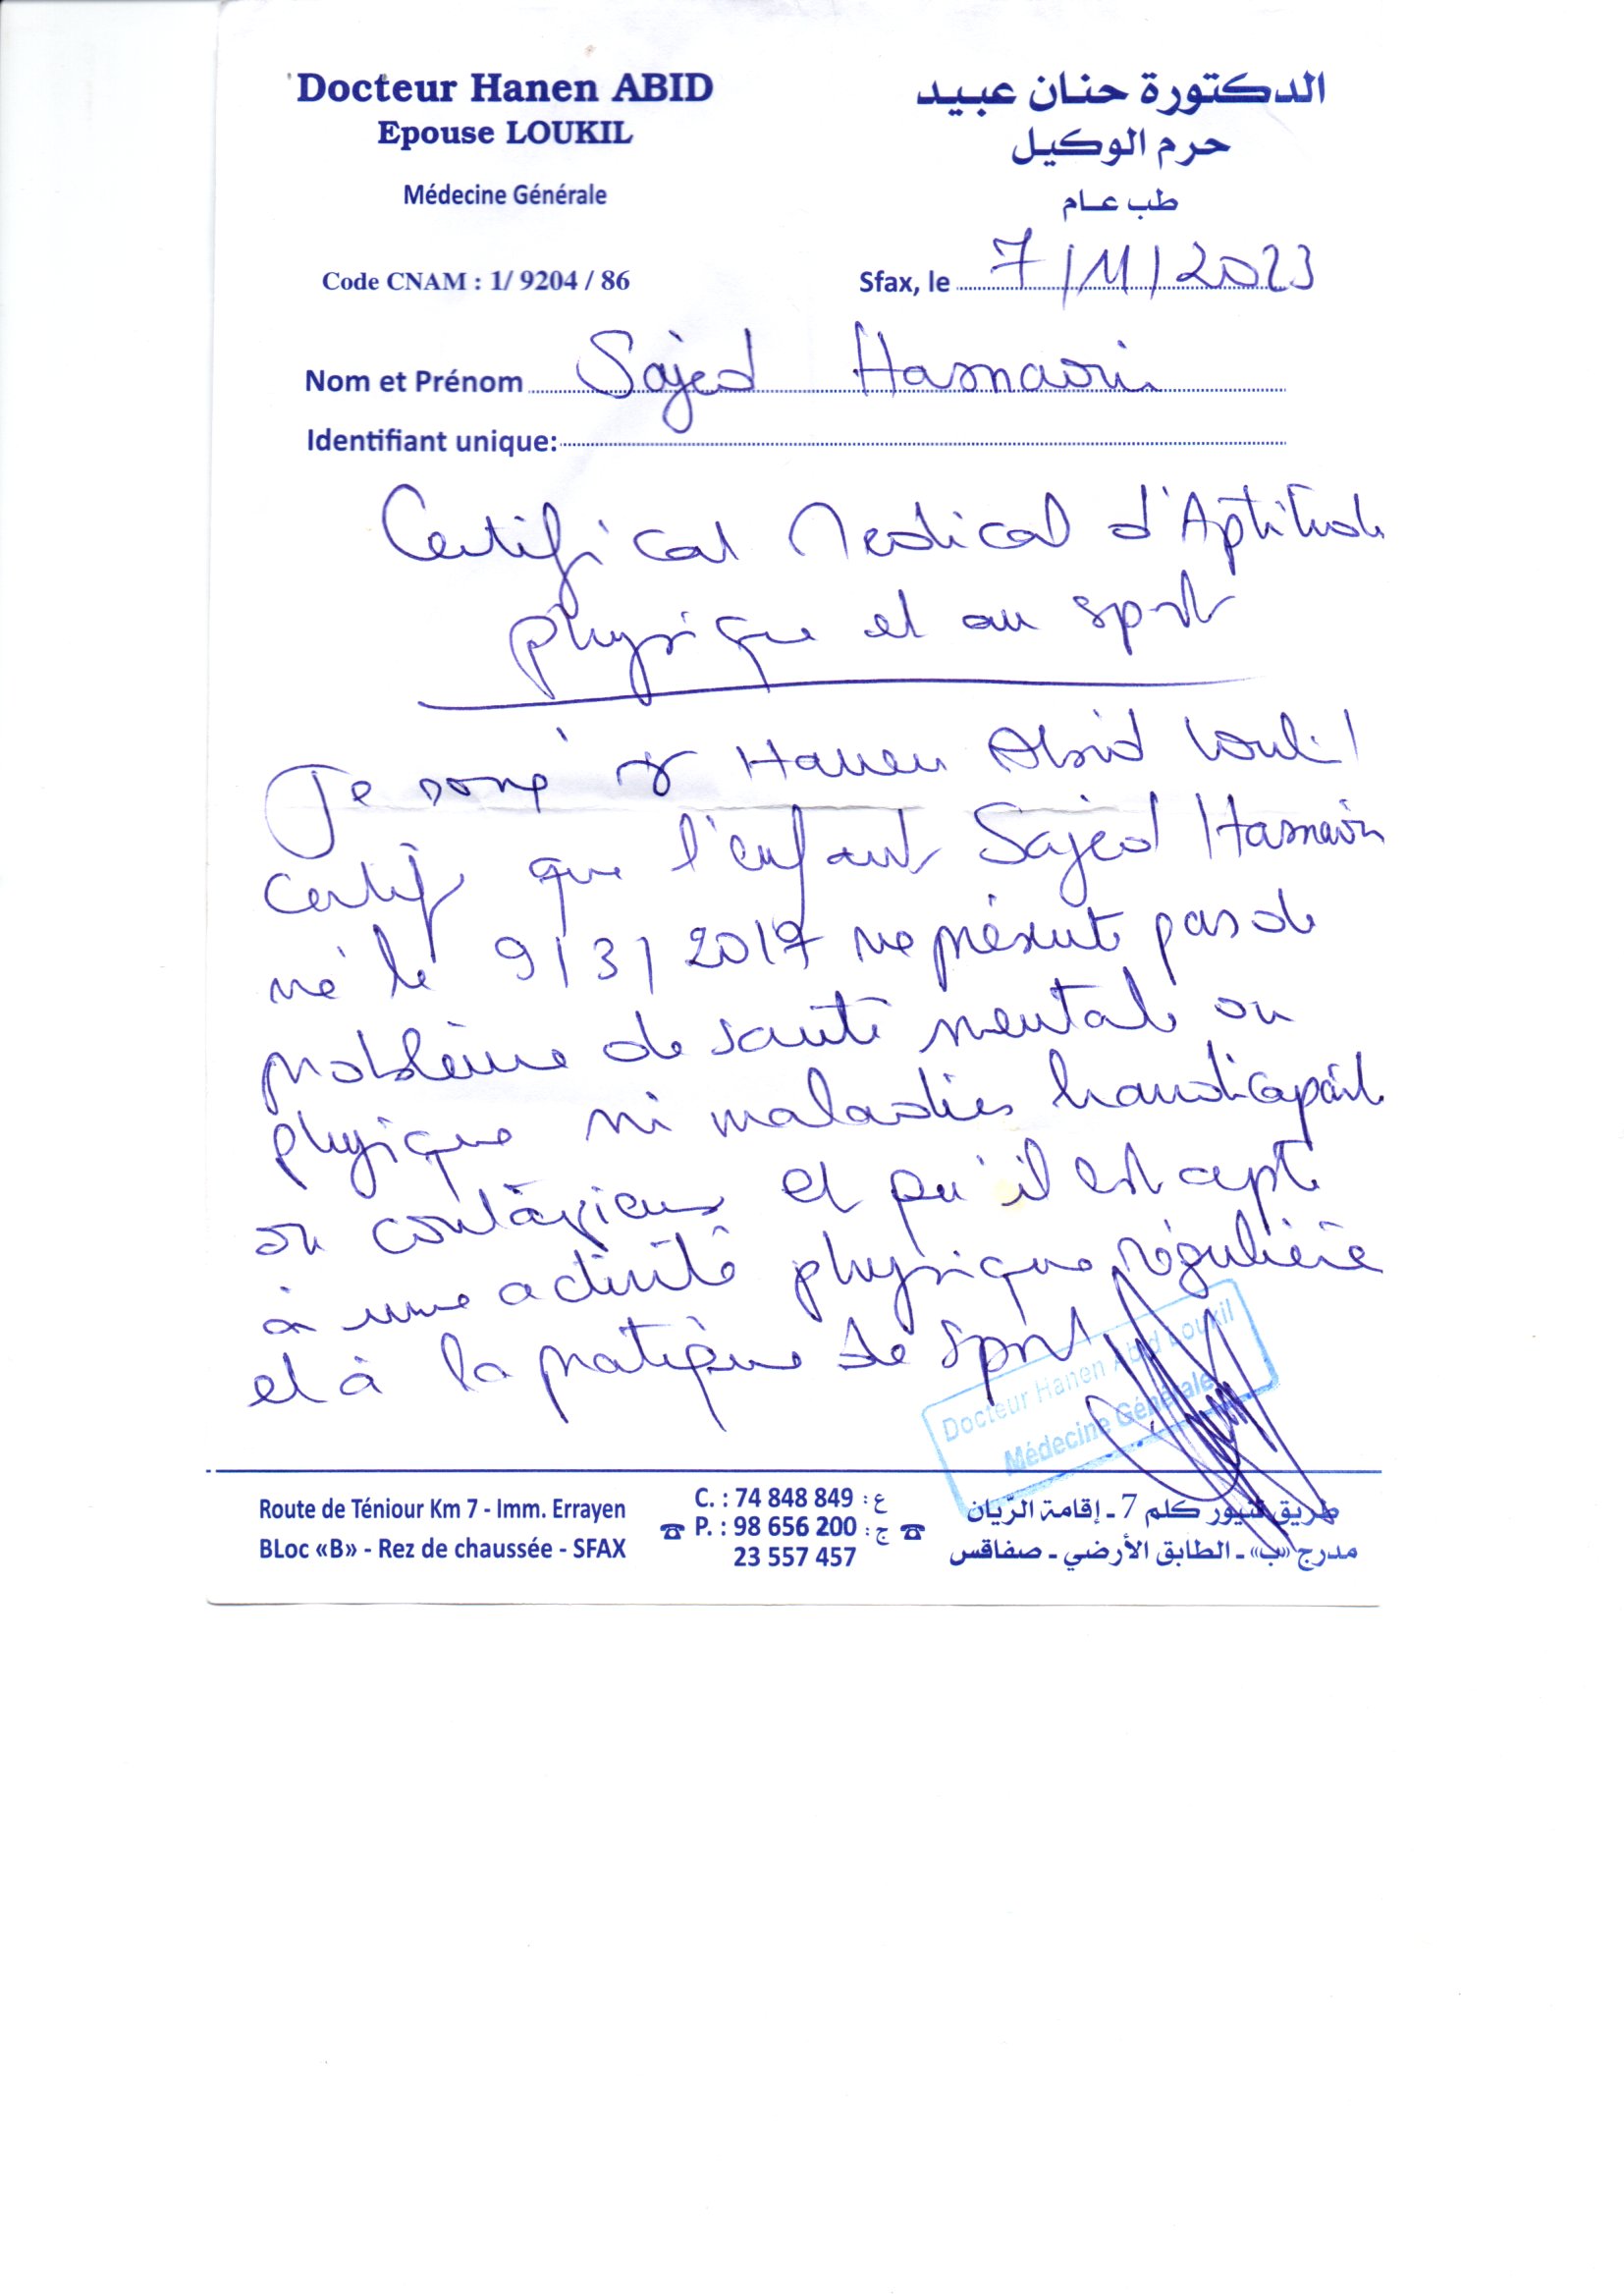 Docteur Hanen ABID
Epouse LOUKIL
Médecine Générale
Code CNAM : 1/ 9204 / 86
الدكتورة حنان عبيد
حرم الوكيل
طب عام
Sfax, le 7/11/2023
Nom et Prénom Sajed Hasnaoui
Identifiant unique:
Certificat Medical d'Aptitude
physique et au sport
Je soussigné Dr Hanen Abid Loukil
certifie que l'enfant Sajed Hasnaoui
né le 9/3/2017 ne présente pas de
problème de santé mentale ou
physique ni maladies handicapante
ou contagieuse et qu'il est apte
à une activité physique régulière
et à la pratique de sport
Docteur Hanen Abid Loukil
Médecine Générale
Route de Téniour Km 7 - Imm. Errayen
BLoc «B» - Rez de chaussée - SFAX
C. : 74 848 849 : ع
P. : 98 656 200 : ج
23 557 457
طريق تنيور كلم 7 ـ إقامة الريّان
مدرج «ب» ـ الطابق الأرضي ـ صفاقس